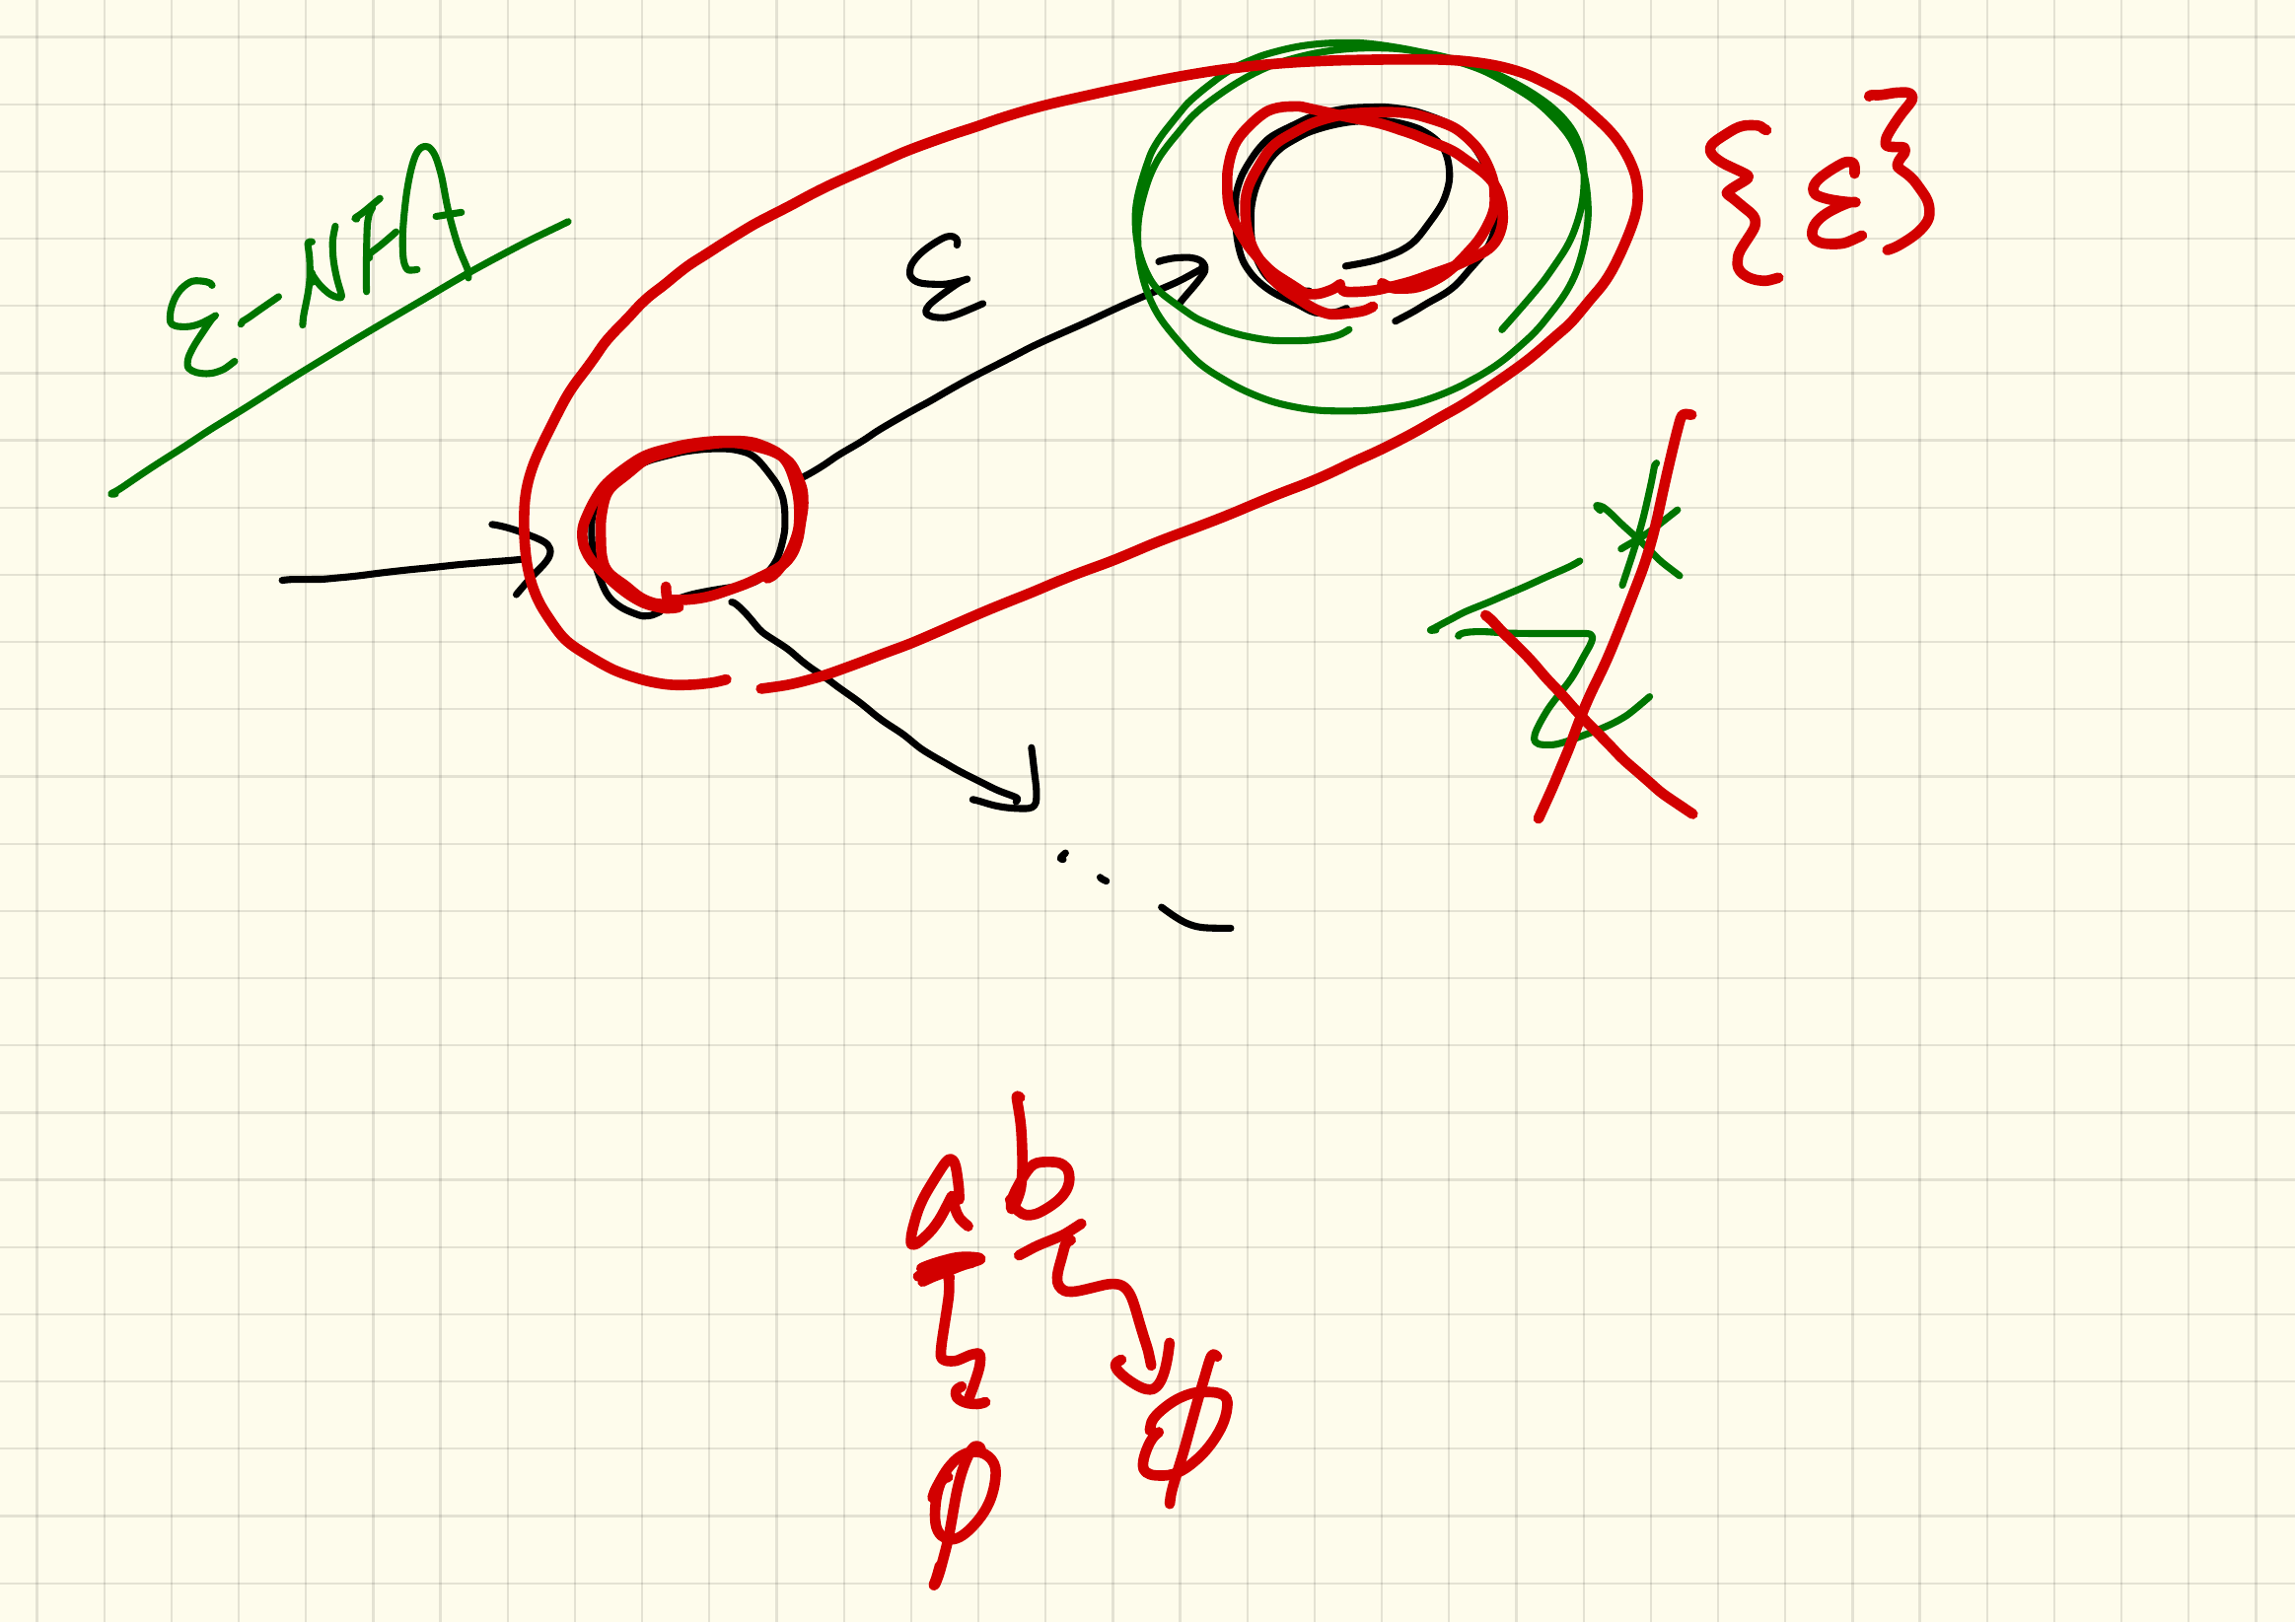 ε-NFA
{ε}
ε
a b
ϕ ϕ